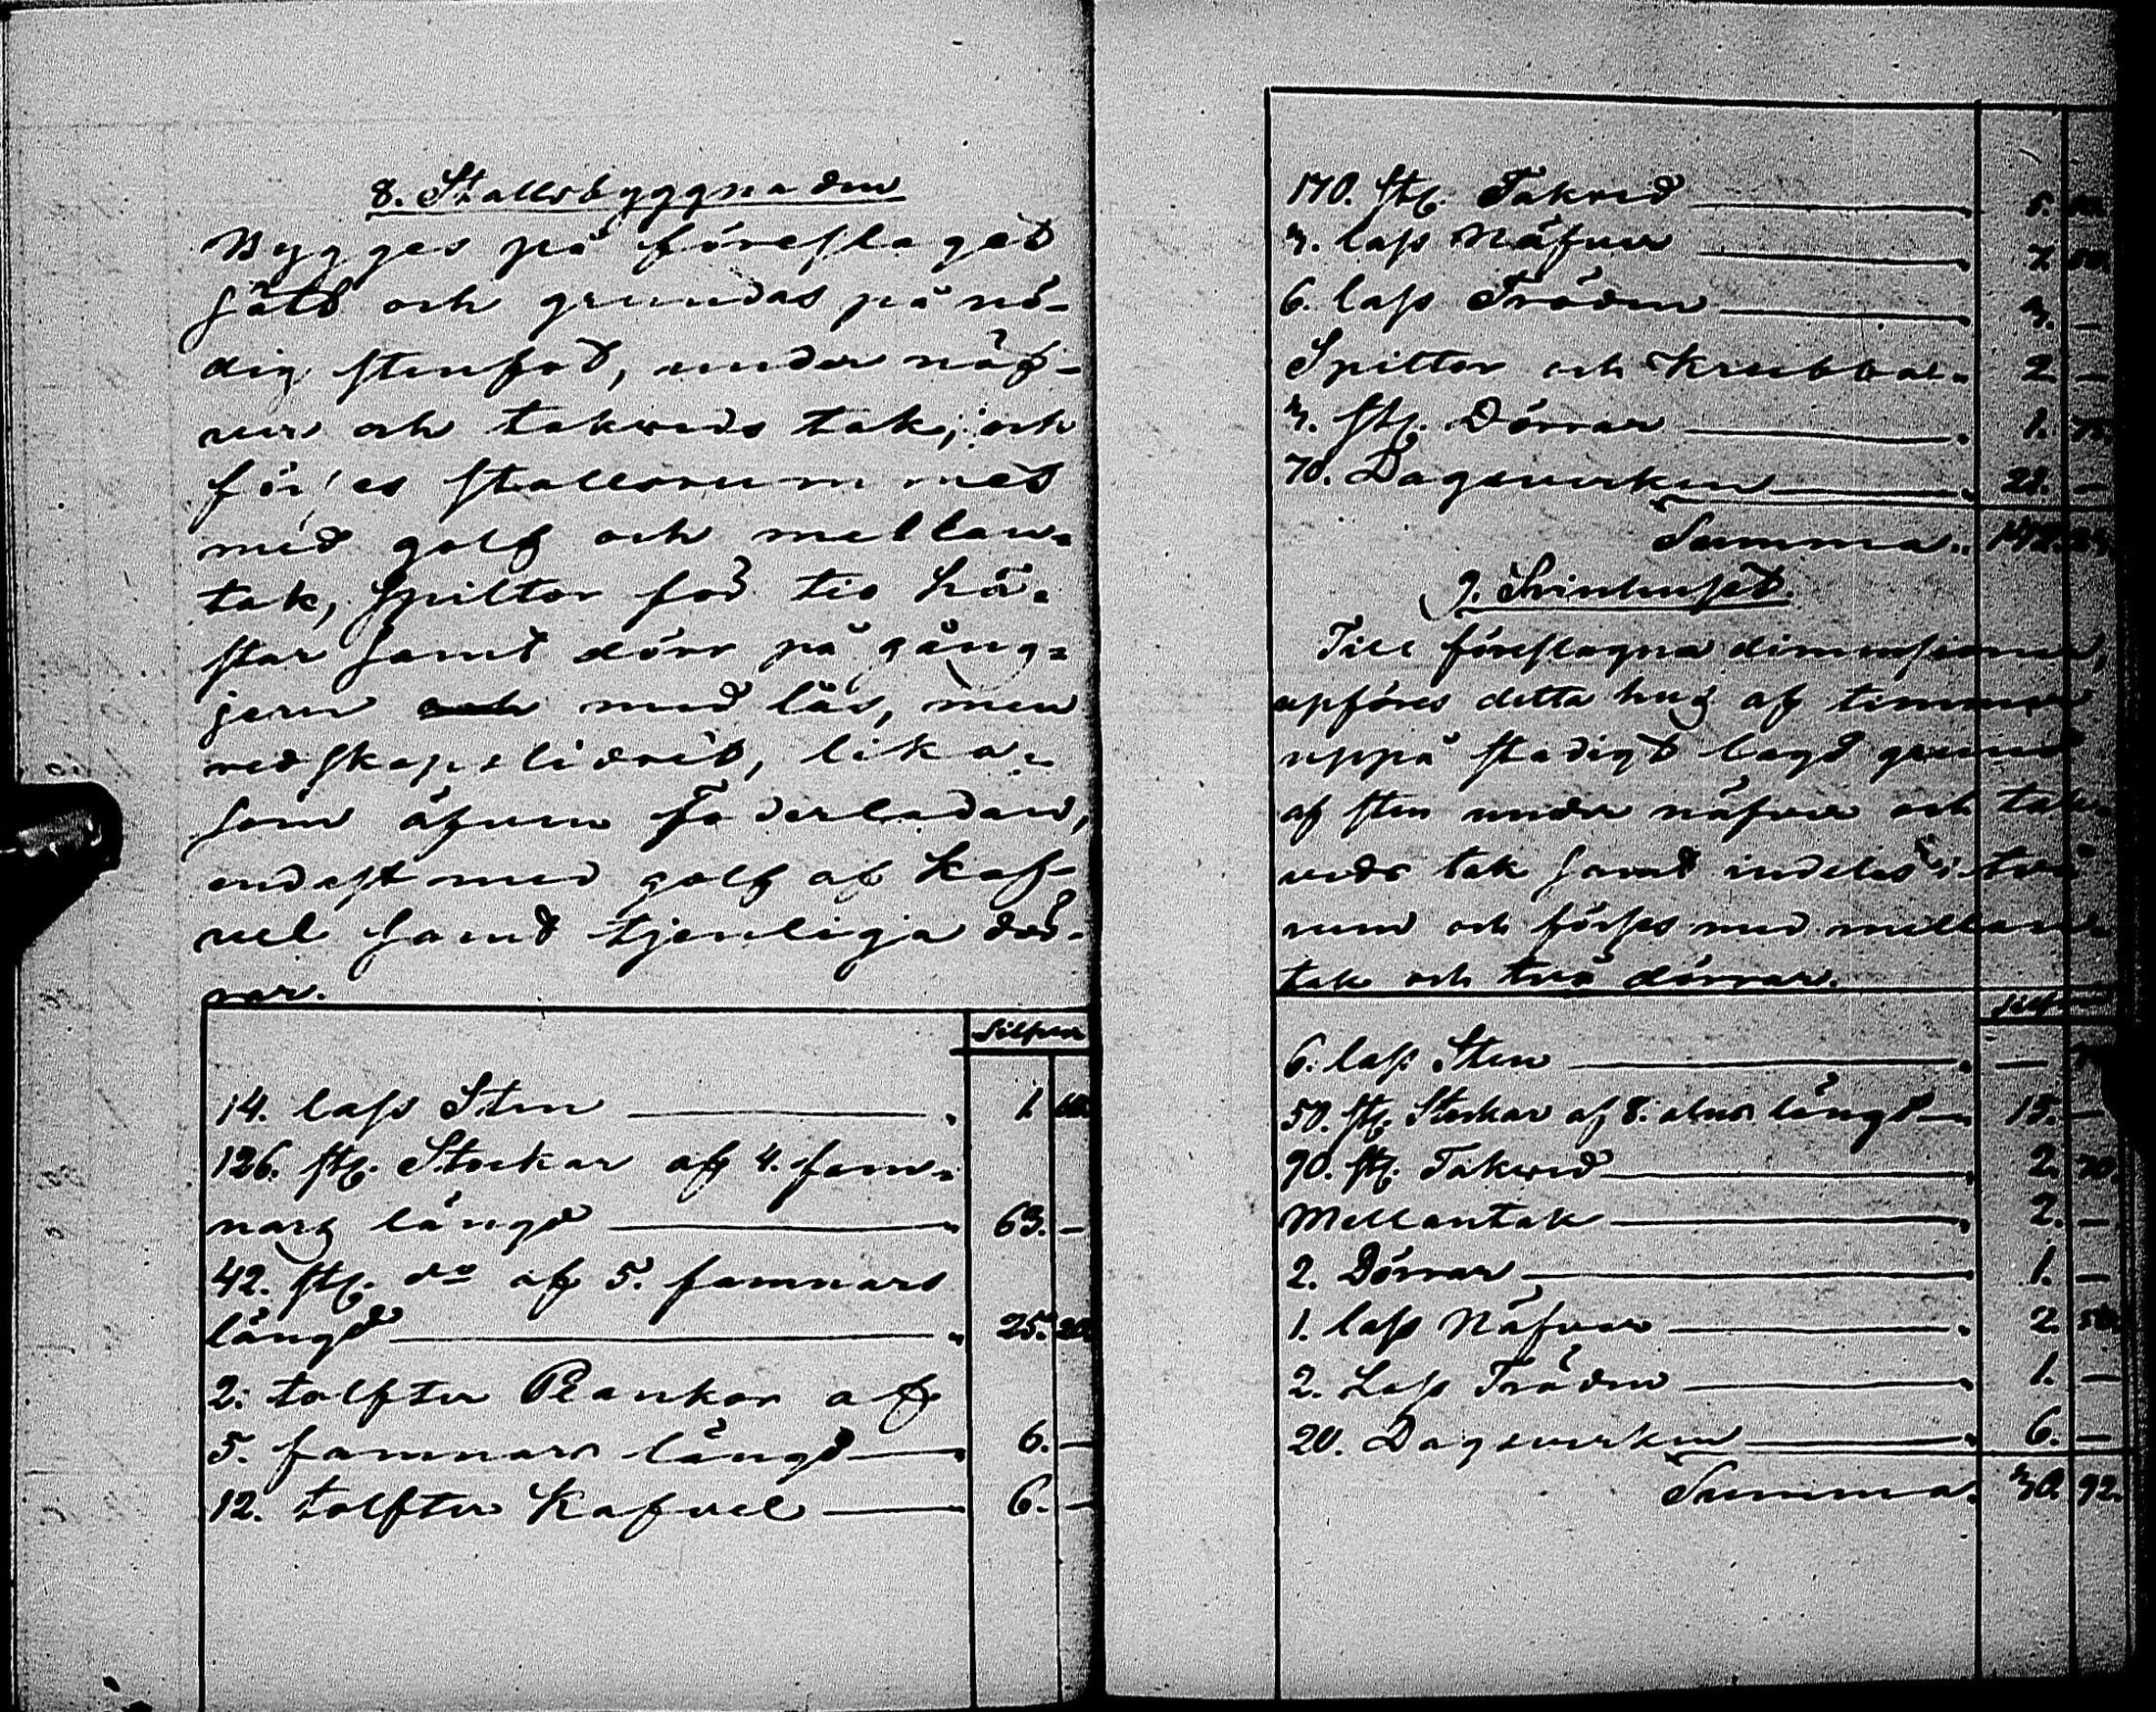 8. Stallsbyggnaden
Bygges på föreslaget
sätt och grundas på nö-
dig stenfot, under näf-
ver och takveds tak, och
förses stallsrummet
med golf och mellan-
tak, Spiltor för tio hä-
star samt dörr på gång-
jern och med lås, men
redskapslidret, lika-
som äfven foderladan,
endast med golf af kaf-
vel samt tjenliga dör-
rar.
Silfver
14. lass Sten 1.
126. st. Stockar af 4. fam-
nars längd 63. —
42. st. do af 5. famnars
längd 25. 20.
2. tolfter Plankor af
5. famnars längd 6. —
12. tolfter Kafvel 6. —
170. st. Takved 5.
3. lass Näfver 7. 50.
6. lass Tröden 3. —
Spiltor och Krubbor 2. —
3. st. Dörrar 1.
70. Dagsverken 21. —
Summa
9. Svinhuset.
Till föreslagna dimensioner,
upföres detta hus af timmer
uppå stadigt lagd grund
af sten under näfver och tak-
veds tak samt indelas i två
rum och förses med mellan-
tak och två dörrar.
Silf
6. lass Sten —
50. st. Stockar af 8. alnar längd 15. —
90. st. Takved 2. 70.
Mellantak 2. —
2. Dörrar 1. —
1. lass Näfver 2. 50.
2. Lass Tröden 1. —
20. Dagsverken 6. —
Summa 30. 92.